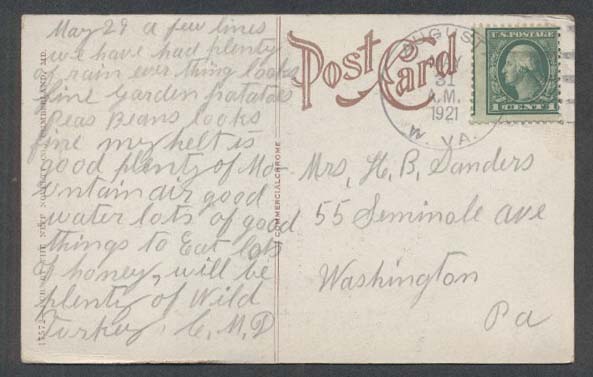 May 29 a few lines
we have had plenty
of rain ever thing looks
fine Garden potatoes
Peas Beans looks
fine my helt is
good plenty of Mo-
untain air good
water lots of good
things to Eat lots
of honey, will be
plenty of Wild
Turkey. C. M. D
Post Card
AUGUSTA
MAY
31
A.M.
1921
W. VA.
U.S. POSTAGE
1 CENT 1
Mrs, H. B, Sanders
55 Seminole ave
Washington
Pa
COMMERCIALCHROME
CUMBERLAND, MD.